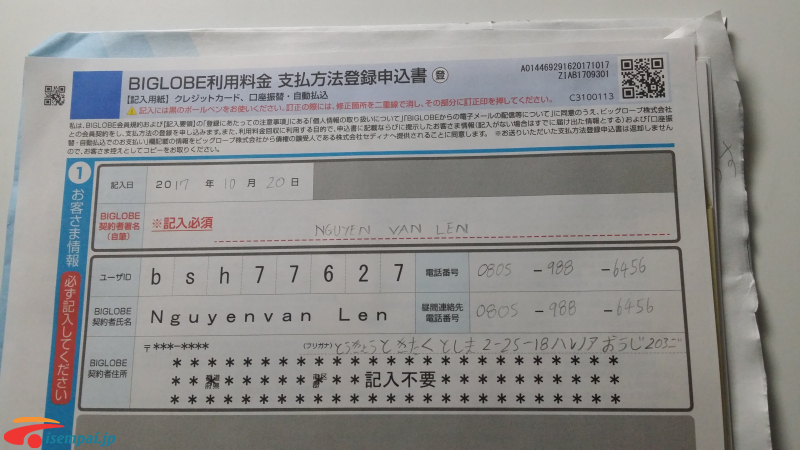 BIGLOBE利用料金 支払方法登録申込書 登
A01446929162017​1017
ZIAB1709301
【記入用紙】クレジットカード、口座振替・自動払込
C3100113
記入には黒のボールペンをお使いください。訂正の際には、修正箇所を二重線で消し、その部分に訂正印を押してください。
私は、BIGLOBE会員規約および【記入要領】の「登録にあたっての注意事項」にある「個人情報の取り扱いについて」「BIGLOBEからの電子メールの配信等について」に同意のうえ、ビッグローブ株式会社
との会員契約をし、支払方法の登録を申し込みます。また、利用料金回収に利用する目的で、申込書に記載ならびに提示したお客さま情報(記入がない場合はすでに届け出た情報とする)および「口座振
替・自動払込でのお支払い」欄記載の情報をビッグローブ株式会社から債権の譲受人である株式会社セディナへ提供されることに同意します。 ※お送りいただいた支払方法登録申込書は返却しません
ので、お客さま控えとしてコピーをお取りください。
1 お客さま情報 必ず記入してください
記入日 2017 年 10 月 20 日
BIGLOBE
契約者署名
(自筆)
※記入必須 NGUYEN VAN LEN
ユーザID bsh77627 電話番号 0805 - 988 - 6456
BIGLOBE
契約者氏名
Nguyenvan Len
昼間連絡先
電話番号
0805 - 988 - 6456
BIGLOBE
契約者住所
〒***-**** (フリガナ) とうきょうと きたく としま 2-25-18 ハイノア おうじ 203ご
* * * * * * * * * * * * * * * * * * * * * * * *
記入不要
* * * * * * * * * * * * * * * * * * * * * * * *
isempai.jp